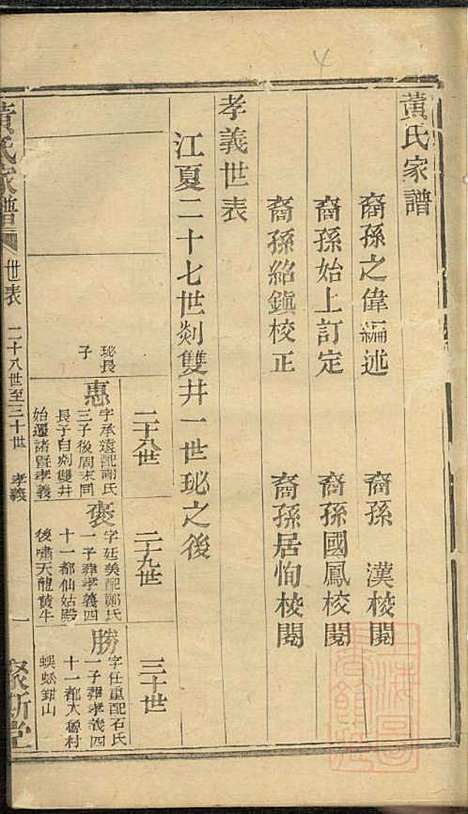 黃氏家譜
裔孫之偉編述
裔孫 漢校閱
裔孫始上訂定
裔孫國鳳校閱
裔孫紹鎮校正
裔孫居恂校閱
孝義世表
江夏二十七世剡雙井一世珌之後
二十八世
二十九世
三十世
珌長子
惠
字承遠配謝氏
三子後周末同
長子自剡雙井
始遷諸暨孝義
褒
字廷美配鄭氏
一子葬孝義四
十一都仙姑殿
後嘯天龍黃牛
勝
字任重配石氏
一子葬孝義四
十一都大魯村
蜈蚣鉗山
黃氏家譜
世表
二十八世至三十世
孝義
一
聚斯堂
4